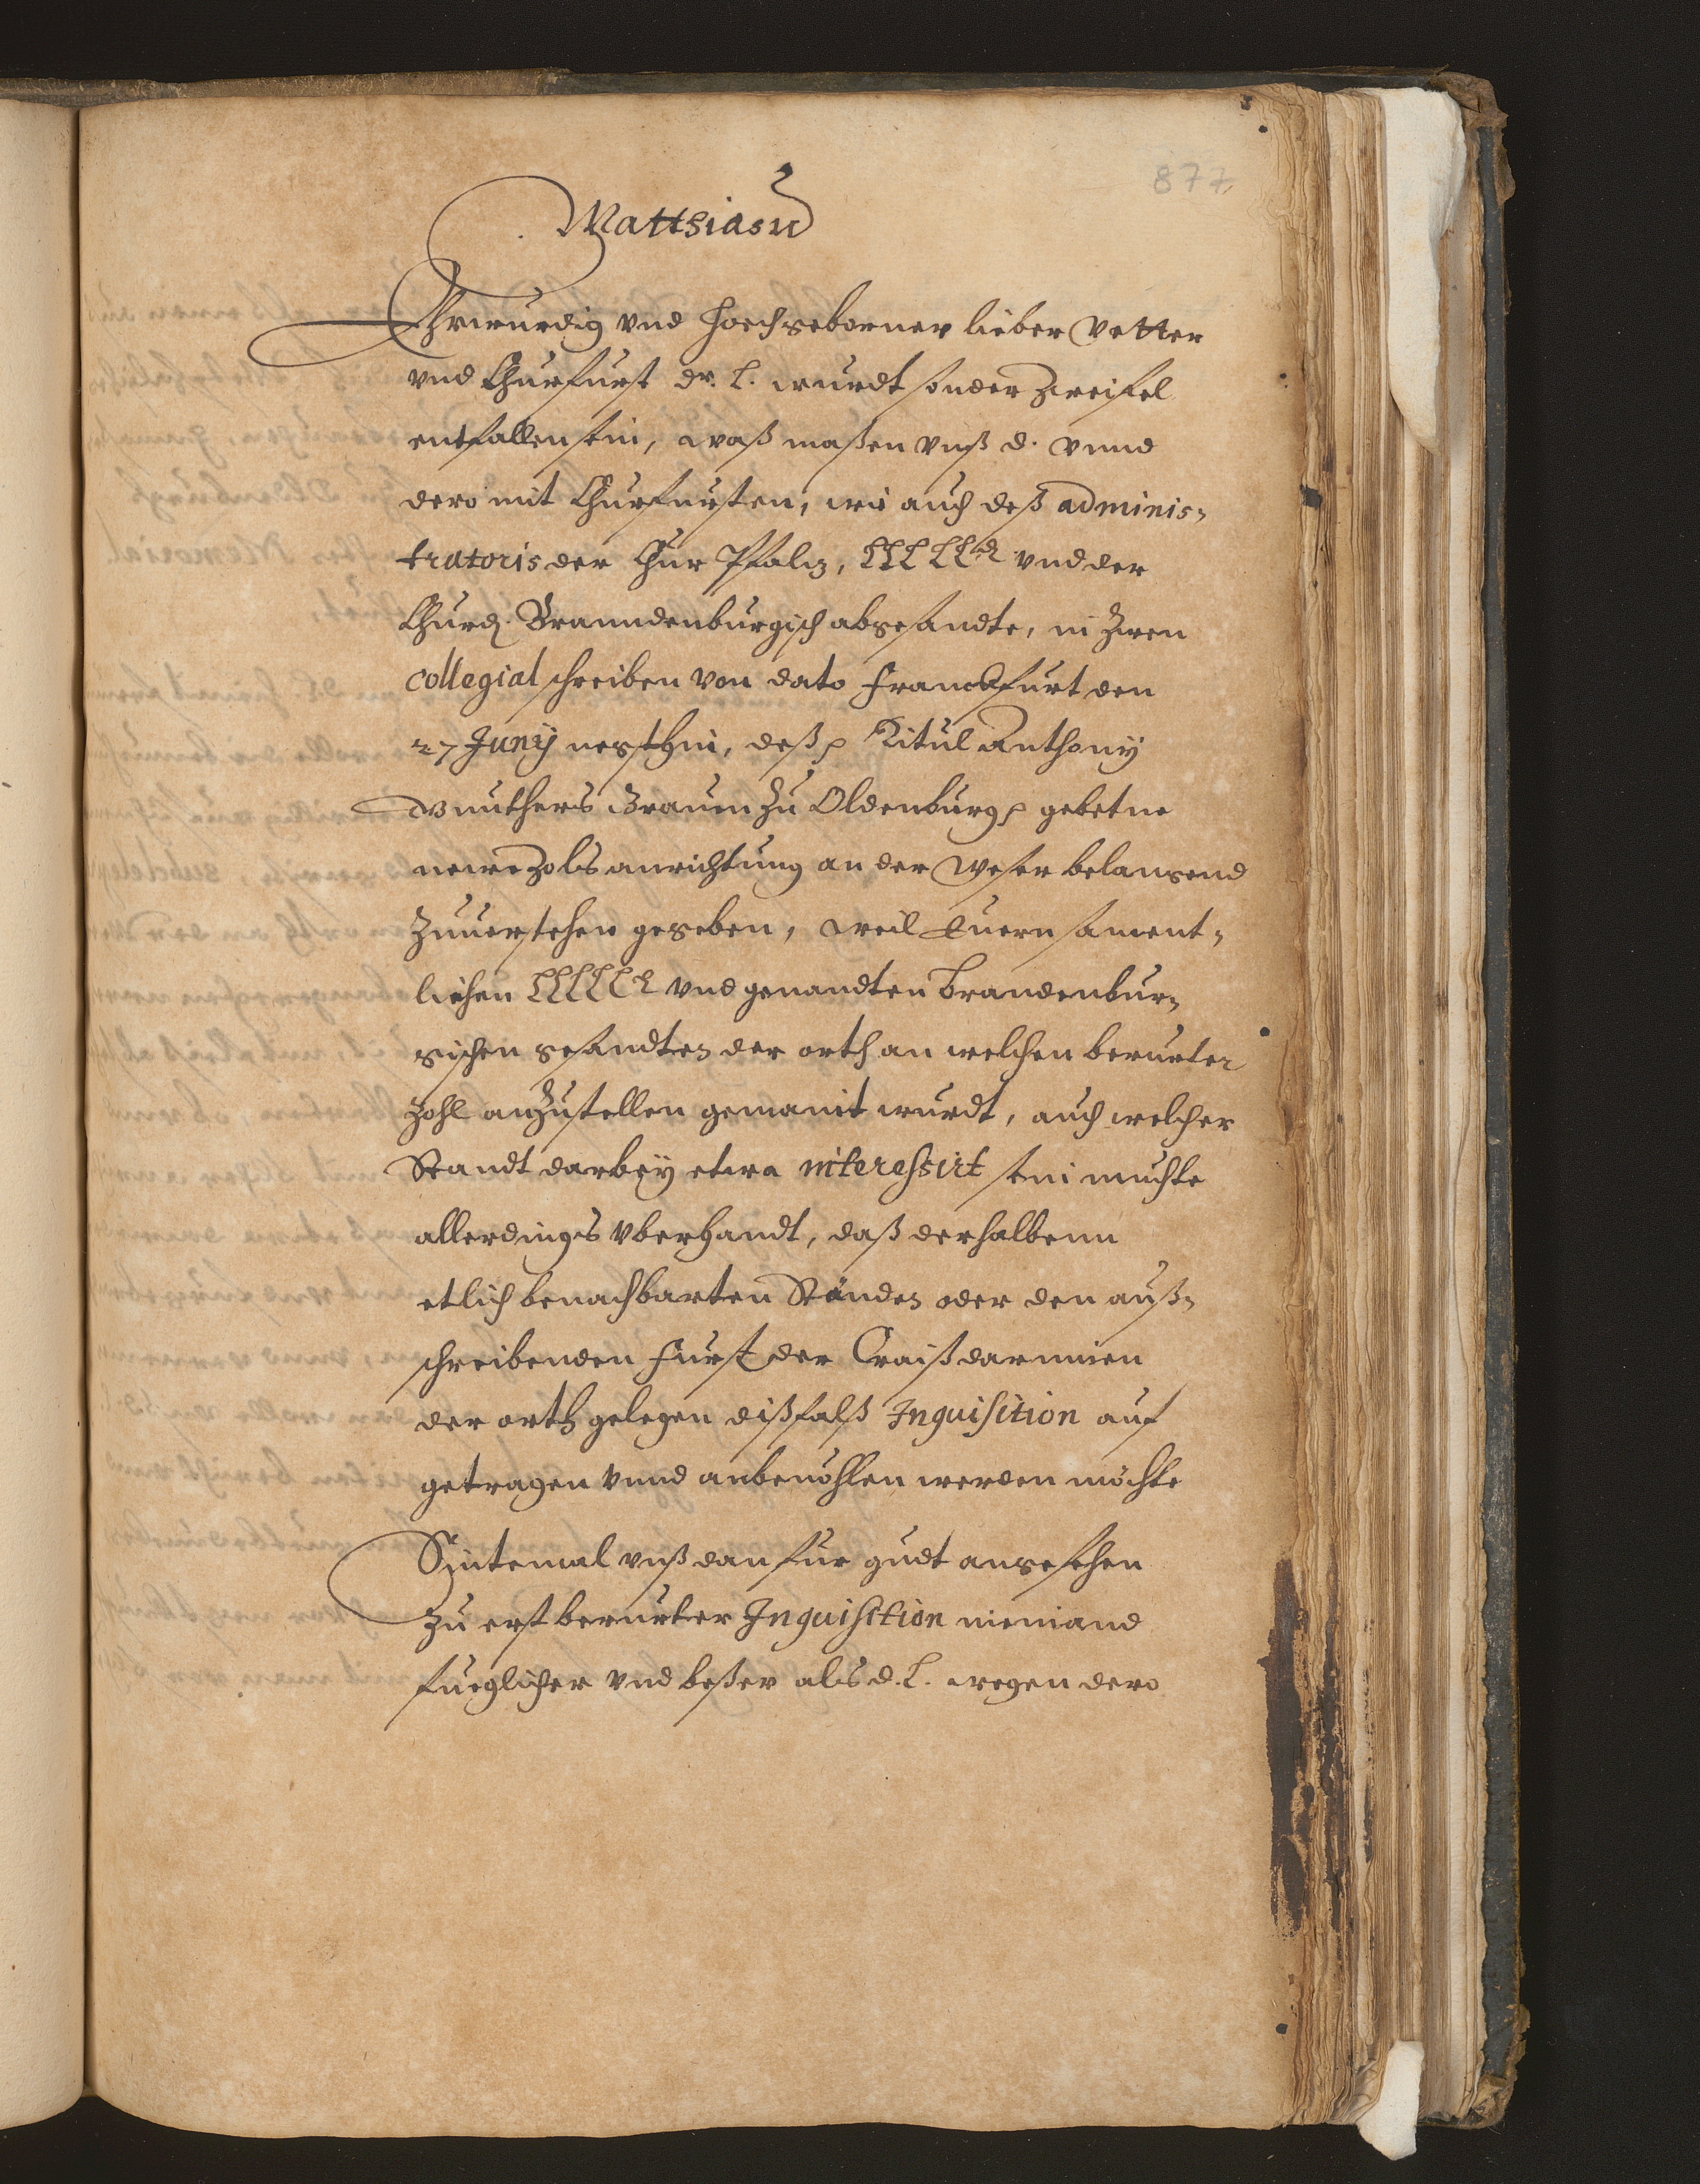 877
Matthias
Ehrwurdig vnd hochgeborner lieber Vetter
vnd Churfurst dr. L. wurdt sonder zweifel
entfallen sein, waß maßen vnß d. vnnd
dero mit Churfursten, wie auch deß adminis-
tratoris der Chur Pfaltz, LLL LL. vnd der
Churf. Branndenburgisch abgesandte, in zween
collegial schreiben von dato Franckfurt den
27 Junij nechsthin, deß Titul Anthonij
Gunthers Grauen zu Oldenburg gebetne
newe Zols anrichtung an der Weser belangend
zuuerstehen geseben, weil Euern sament-
lichen LLLLL vnd genandten brandenbur-
gischen gesandten der orth an welchen berurter
Zohl anzustellen gemaint wurdt, auch welcher
Standt darbey etwa interessirt sein muchte
allerdings vnbekandt, daß derhalbenn
etlich benachbarten Stände oder den auß-
schreibenden Furst der Craiß darinnen
der orth gelegen dißfalß Inquisition auf
getragen vnnd anbeuohlen werden möchte
Sintemal vnß dan fur gudt angesehen
zu erst berurter Inquisition niemand
fueglicher vnd beßer als d. L. wegen dero